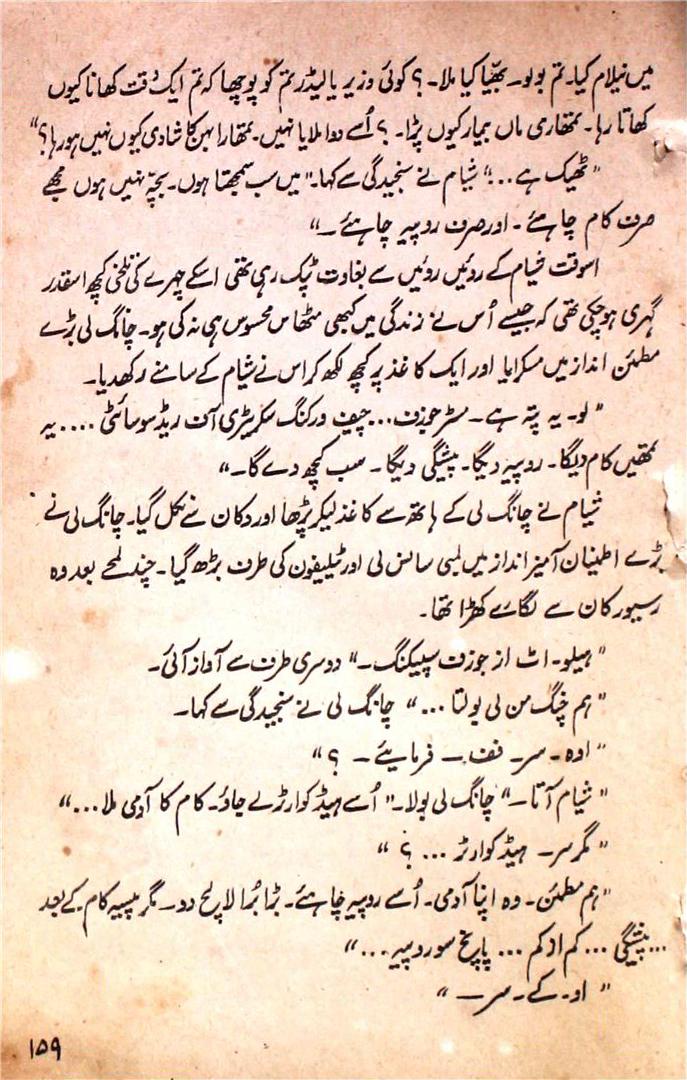 میں نیلام کیا۔ تم بولو۔ بھیّا کیا ملا۔ ؟ کوئی وزیر یا لیڈر تم کو پوچھا کہ تم ایک وقت کھانا کیوں
کھاتا رہا۔ تمھاری ماں بیمار کیوں پڑا۔ ؟ اُسے دوا ملایا نہیں۔ تمھارا بہن کا شادی کیوں نہیں ہورہا؟"
"ٹھیک ہے...:" شیام نے سنجیدگی سے کہا۔ "میں سب سمجھتا ہوں۔ بچّہ نہیں ہوں مجھے
صرف کام چاہئے۔ اور صرف روپیہ چاہئے۔"
اسوقت شیام کے روئیں روئیں سے بغاوت ٹپک رہی تھی اسکے چہرے کی تلخی کچھ اسقدر
گہری ہوچکی تھی کہ جیسے اُس نے زندگی میں کبھی مٹھاس محسوس ہی نہ کی ہو۔ چانگ لی بڑے
مطمئن انداز میں مسکرایا اور ایک کاغذ پر کچھ لکھ کر اس نے شیام کے سامنے رکھدیا۔
"لو۔ یہ پتہ ہے۔ مسٹر جوزف... چیف ورکنگ سکریٹری آف ریڈ سوسائٹی .... یہ
تمھیں کام دیگا۔ روپیہ دیگا۔ پیشگی دیگا۔ سب کچھ دے گا۔"
شیام نے چانگ لی کے ہاتھ سے کاغذ لیکر پڑھا اور دکان سے نکل گیا۔ چانگ لی نے
بڑے اطمینان آمیز انداز میں لمبی سانس لی اور ٹیلیفون کی طرف بڑھ گیا۔ چند لمحے بعد وہ
رسیور کان سے لگائے کھڑا تھا۔
"ہیلو۔ اٹ از جوزف سپیکنگ۔" دوسری طرف سے آواز آئی۔
"ہم چنگ من لی بولتا ..." چانگ لی نے سنجیدگی سے کہا۔
"اوہ۔ سر۔ فف۔ فرمایئے۔ ؟"
"شیام آتا۔" چانگ لی بولا۔ "اُسے ہیڈ کوارٹر لے جاؤ۔ کام کا آدمی ملا..."
"مگر سر۔ ہیڈ کوارٹر ... ؟"
"ہم مطمئن۔ وہ اپنا آدمی۔ اُسے روپیہ چاہئے۔ بڑا بُرا لالچ دو۔ مگر پیسہ کام کے بعد
... پیشگی ... کم از کم ... پانچ سو روپیہ ..."
"او۔ کے۔ سر۔"
۱۵۹